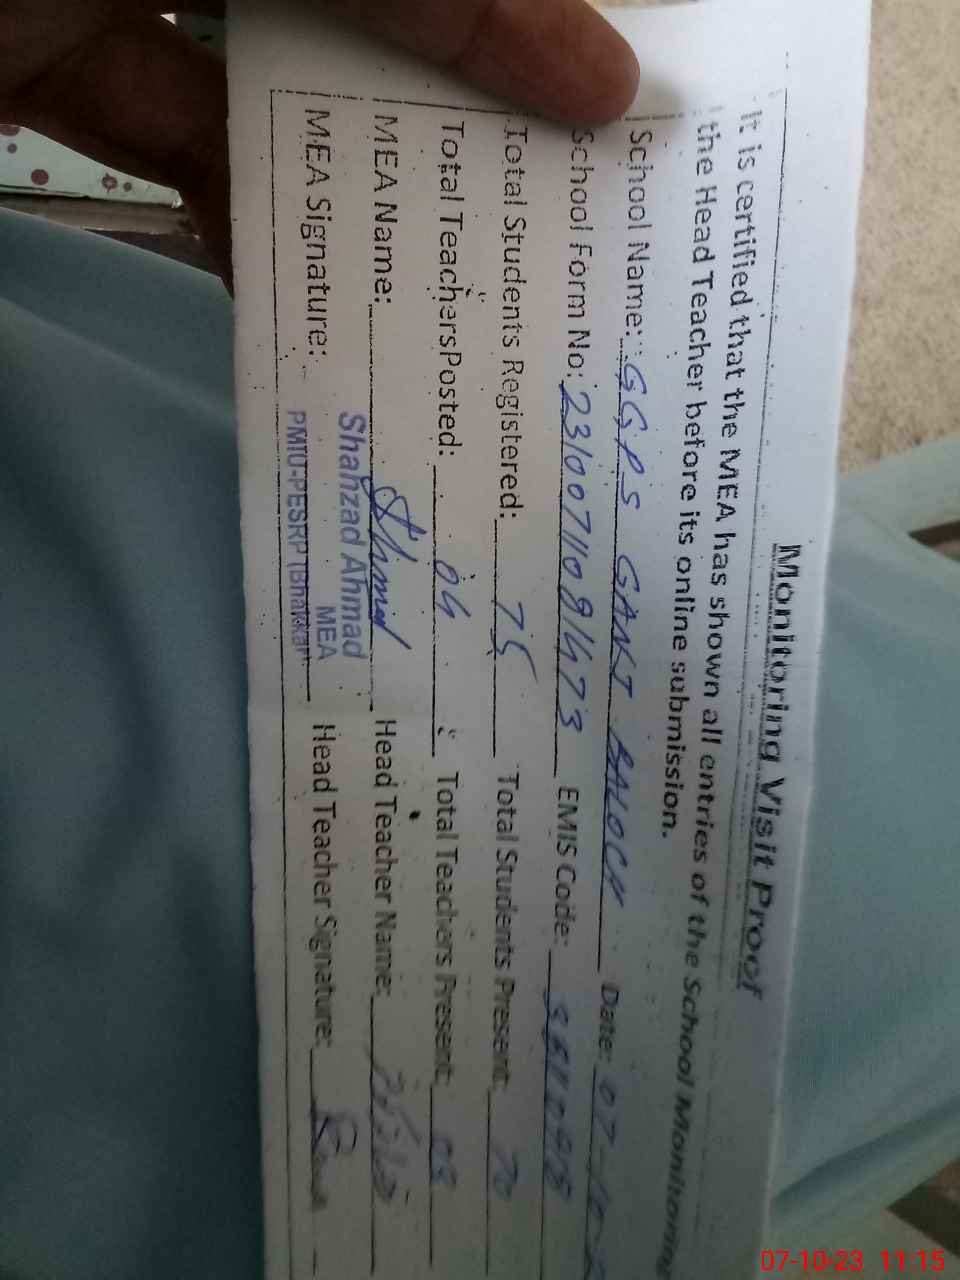 Monitoring Visit Proof
It is certified that the MEA has shown all entries of the School Monitoring
the Head Teacher before its online submission.
School Name: GGPS GANJ BALOCH Date: 07-10-
School Form No: 23100711081473 EMIS Code:
Total Students Registered: 75 Total Students Present: 70
Total TeachersPosted: 04 Total Teachers Present: 03
MEA Name: Head Teacher Name:
Shahzad Ahmad
MEA
MEA Signature: PMIU-PESRP (Bhakkar) Head Teacher Signature:
07-10-23 11:15